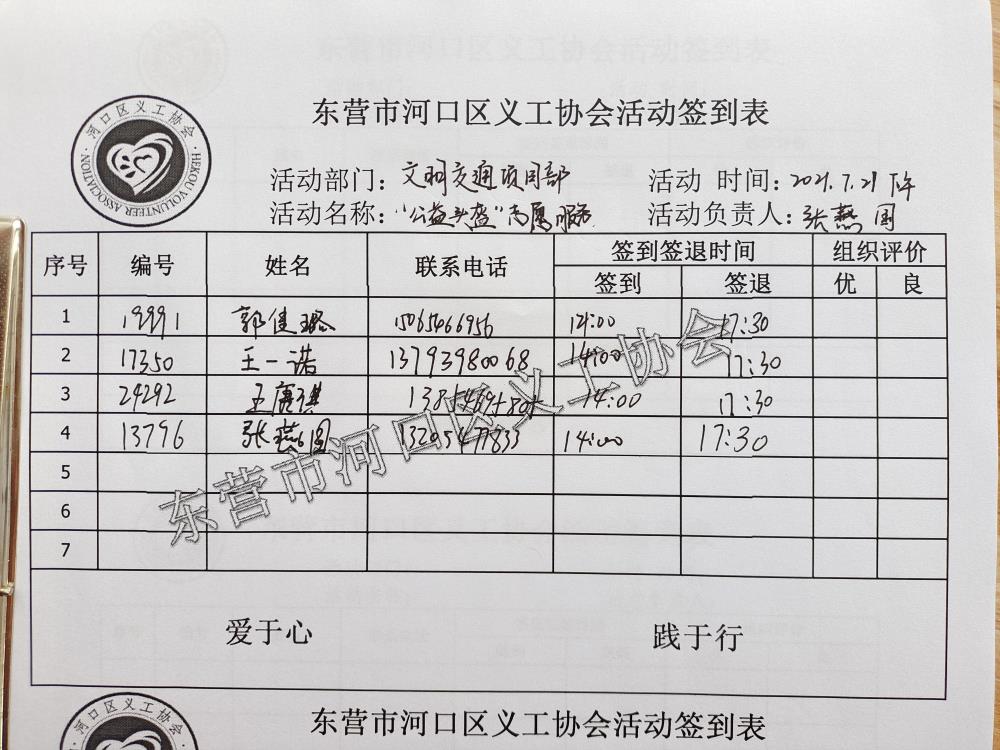 东营市河口区义工协会活动签到表
河口区义工协会
HEKOU VOLUNTEER ASSOCIATION
活动部门：文明交通项目部
活动 时间：2021.7.21 下午
活动名称："公益头盔"志愿服务
活动负责人：张燕国
序号 编号 姓名 联系电话 签到签退时间 组织评价
签到 签退 优 良
1 19991 郭佳璐 15065466956 14:00 17:30
2 17350 王一诺 13793980068 14:00 17:30
3 24292 王唐祺 14:00 17:30
4 13796 张燕国 14:00 17:30
5
6
7
东营市河口区义工协会
爱于心 践于行
东营市河口区义工协会活动签到表
河口区义工协会